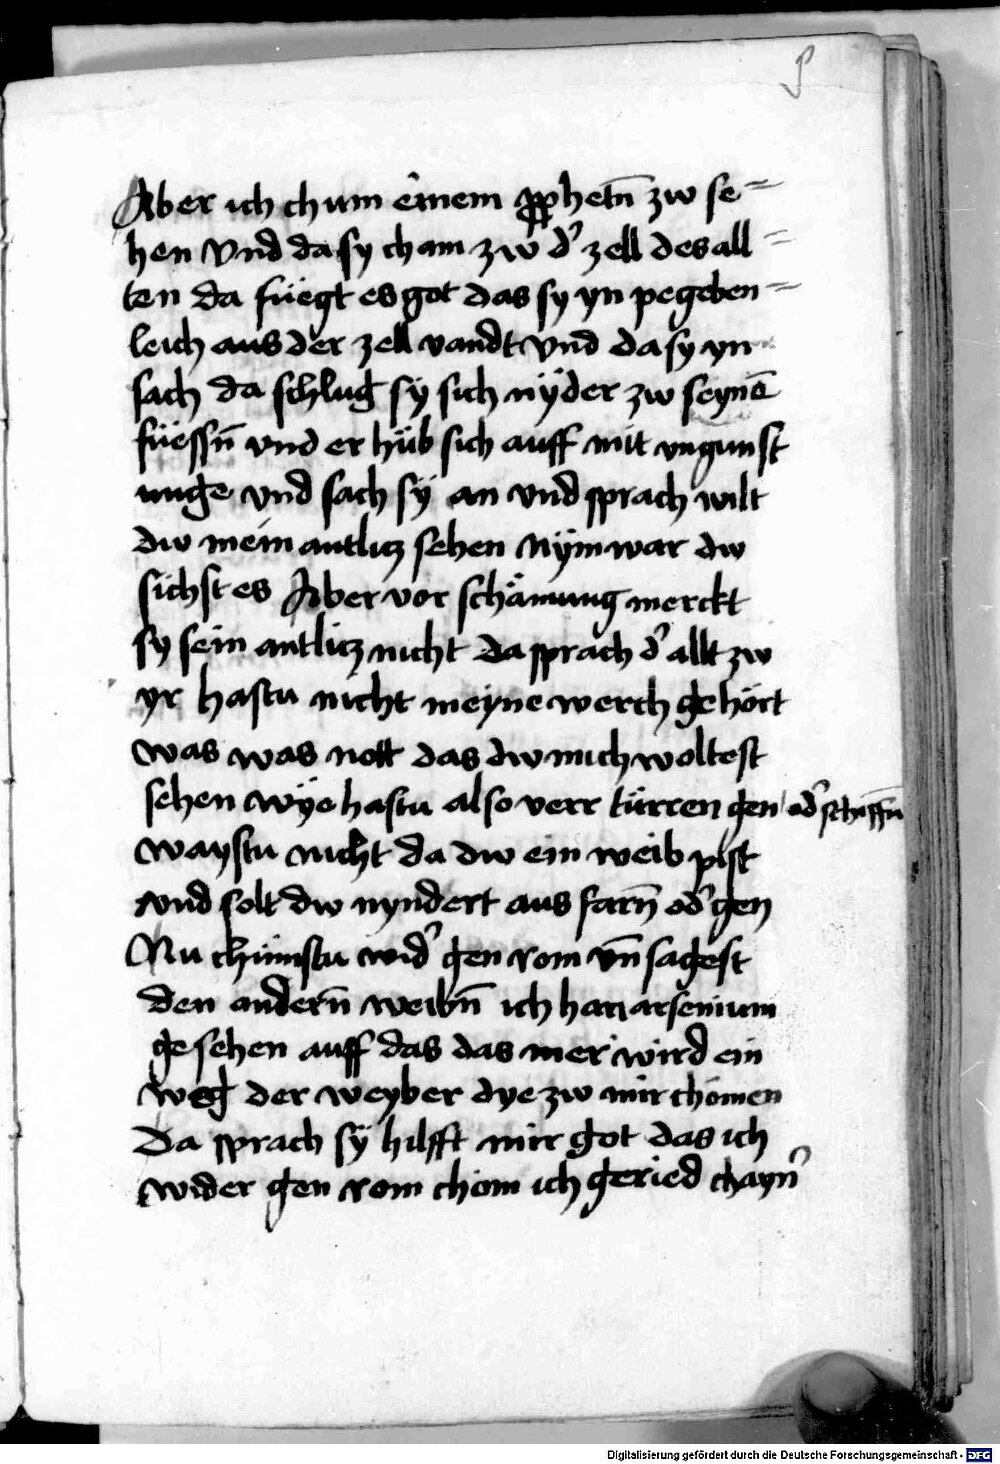 Aber ich chum einem ꝓphetn̄ zw se=
hen Vnd da sy cham zw d' zell des all=
ten da füegt es got das sy yn pegeben=
leich aus der zell vandt Vnd da sy yn
sach da schlug sÿ sich nÿder zw seynē
füessn̄ vnd er hüb sich auff mit vngunst
unge vnd sach sÿ an vnd sprach wilt
dw mein antlicz sehen Nÿm war dw
sichst es Aber vor schämung merckt
sy sein antlicz nicht Da sprach d' allt zw
yr hastu nicht meyne werch gehört
was was nott das dw mich woltest
sehen wÿe hastu also verr türren gen od' schiffn̄
waystu nicht da dw ein weib pist
vnd solt dw nyndert aus farn̄ od' gen
Nu chümstu wid' gen rom vn̄ sagest
den andern̄ weibn̄ ich han arsenium
gesehen auff das das mer wird ein
weg der weyber dye zw mir chömen
Da sprach sÿ hilfft mir got das ich
wider gen rom chom ich geried chayn'
Digitalisierung gefördert durch die Deutsche Forschungsgemeinschaft - DFG